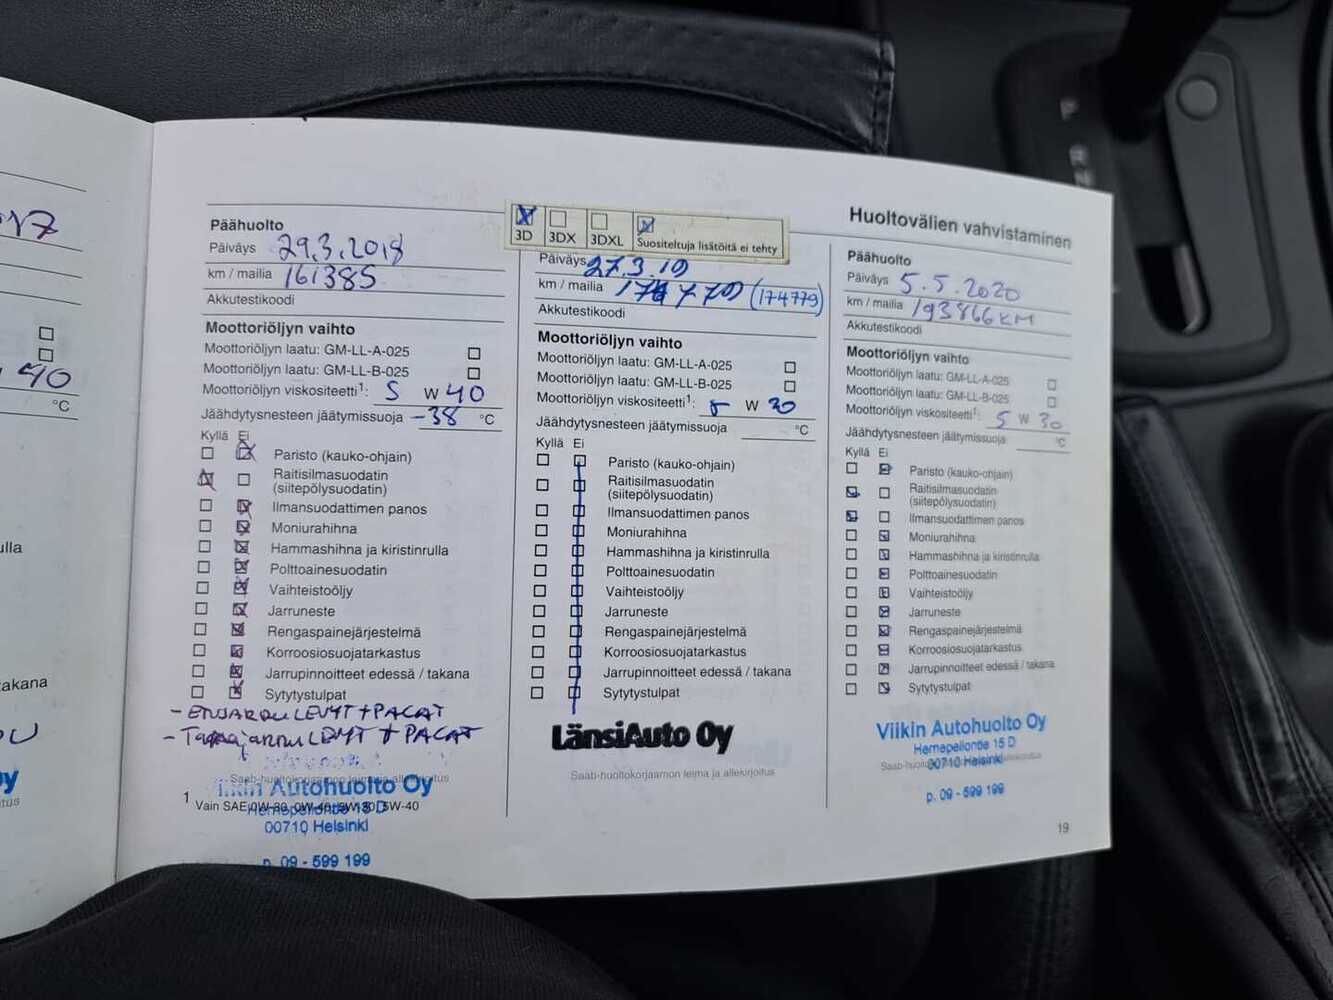 17
40
°C
ulla
takana
Huoltovälien vahvistaminen
Päähuolto
Päiväys 29.3.2018
km / mailia 161385
Akkutestikoodi
Moottoriöljyn vaihto
Moottoriöljyn laatu: GM-LL-A-025
Moottoriöljyn laatu: GM-LL-B-025
Moottoriöljyn viskositeetti1: 5 W 40
Jäähdytysnesteen jäätymissuoja -38 °C
Kyllä Ei
Paristo (kauko-ohjain)
Raitisilmasuodatin
(siitepölysuodatin)
Ilmansuodattimen panos
Moniurahihna
Hammashihna ja kiristinrulla
Polttoainesuodatin
Vaihteistoöljy
Jarruneste
Rengaspainejärjestelmä
Korroosiosuojatarkastus
Jarrupinnoitteet edessä / takana
Sytytystulpat
- ETUJARRULEVYT + PALAT
- TakajarruLEVYT + PALAT
Saab-huoltokorjaamon leima ja allekirjoitus
Viikin Autohuolto Oy
1 Vain SAE 0W-30, 0W-40, 5W-30, 5W-40
Hernepellontie 15 D
00710 Helsinki
p. 09 - 599 199
3D 3DX 3DXL Suositeltuja lisätöitä ei tehty
Päiväys 27.3.19
km / mailia 174779 (174779)
Akkutestikoodi
Moottoriöljyn vaihto
Moottoriöljyn laatu: GM-LL-A-025
Moottoriöljyn laatu: GM-LL-B-025
Moottoriöljyn viskositeetti1: 5 W 30
Jäähdytysnesteen jäätymissuoja °C
Kyllä Ei
Paristo (kauko-ohjain)
Raitisilmasuodatin
(siitepölysuodatin)
Ilmansuodattimen panos
Moniurahihna
Hammashihna ja kiristinrulla
Polttoainesuodatin
Vaihteistoöljy
Jarruneste
Rengaspainejärjestelmä
Korroosiosuojatarkastus
Jarrupinnoitteet edessä / takana
Sytytystulpat
LänsiAuto Oy
Saab-huoltokorjaamon leima ja allekirjoitus
Päähuolto
Päiväys 5.5.2020
km / mailia 193866 KM
Akkutestikoodi
Moottoriöljyn vaihto
Moottoriöljyn laatu: GM-LL-A-025
Moottoriöljyn laatu: GM-LL-B-025
Moottoriöljyn viskositeetti1: 5 W 30
Jäähdytysnesteen jäätymissuoja °C
Kyllä Ei
Paristo (kauko-ohjain)
Raitisilmasuodatin
(siitepölysuodatin)
Ilmansuodattimen panos
Moniurahihna
Hammashihna ja kiristinrulla
Polttoainesuodatin
Vaihteistoöljy
Jarruneste
Rengaspainejärjestelmä
Korroosiosuojatarkastus
Jarrupinnoitteet edessä / takana
Sytytystulpat
Viikin Autohuolto Oy
Hernepellontie 15 D
00710 Helsinki
p. 09 - 599 199
19
P
R